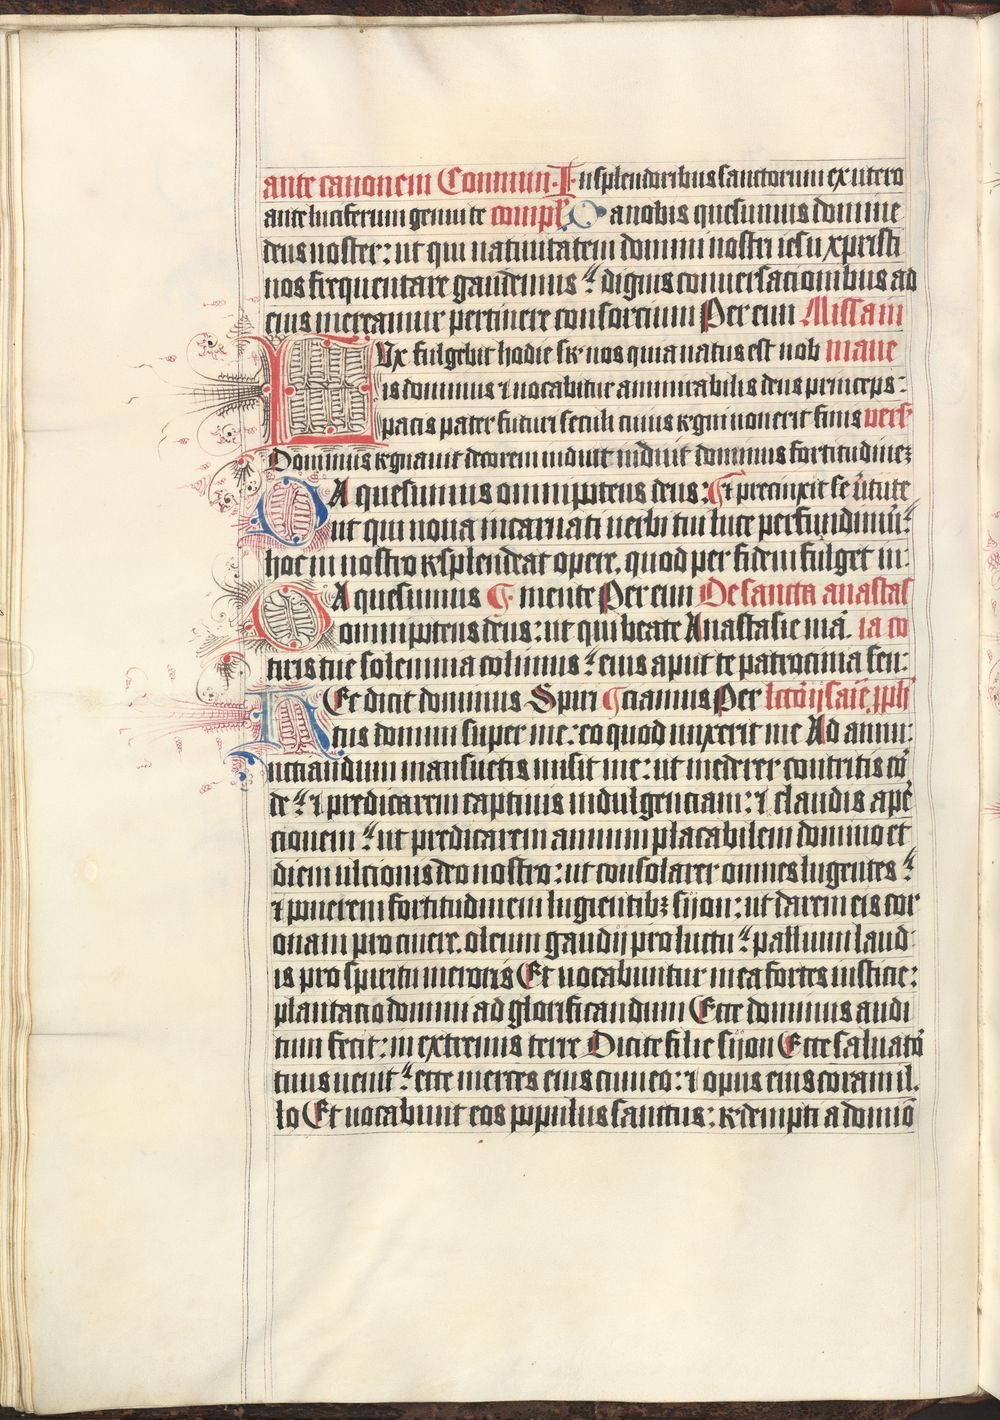 ante canonem Commun. In splendoribus sanctorum ex utero
ante luciferum genui te compl. Da nobis quesumus domine
deus noster: ut qui natiuitatem domini nostri iesu xpristi
nos frequentare gaudemus dignis conuersacionibus ad
eius mereamur pertinere consorcium Per eun Missam
LVx fulgebit hodie sr nos quia natus est nob mane
is dominus ⁊ uocabitur ammirabilis deus princeps:
pacis pater futuri seculi cuius regni non erit finis vers
Dominus regnauit decorem induit induit dominus fortitudinez
DA quesumus omnipotens deus: Et precinxit se ũtute
ut qui noua incarnati uerbi tui luce perfundimur
hoc in nostro resplendeat opere. quod per fidem fulget in
DA quesumus mente Per eun De sancta anastas
omnipotens deus: ut qui beate Anastasie mã. ia co
tiris tue solemnia colimus eius aput te patrocinia sen:
HEc dicit dominus Spiri ciamus Per lctõ ijsaie pph
tus domini super me: eo quod unxerit me Ad annu:
nctiandum mansuetis misit me: ut mederer contritis co
de ⁊ predicarem captiuis indulgenciam: ⁊ clausis ape
cionem ut predicarem annum placabilem domino et
diem ulcionis deo nostro: ut consolarer omnes lugentes
⁊ ponerem fortitudinem lugentibz sijon: ut darem eis cor
onam pro cinere. oleum gaudij pro luctu pallium laud
is pro spiritu meroris Et uocabuntur in ea fortes iusticie:
plantatio domini ad glorificandum Ecce dominus audi
tum fecit: in extremis terre Dicite filie sijon Ecce saluato
tuus uenit ecce merces eius cum eo: ⁊ opus eius coram il.
lo Et uocabunt eos populus sanctus: redempti a domio